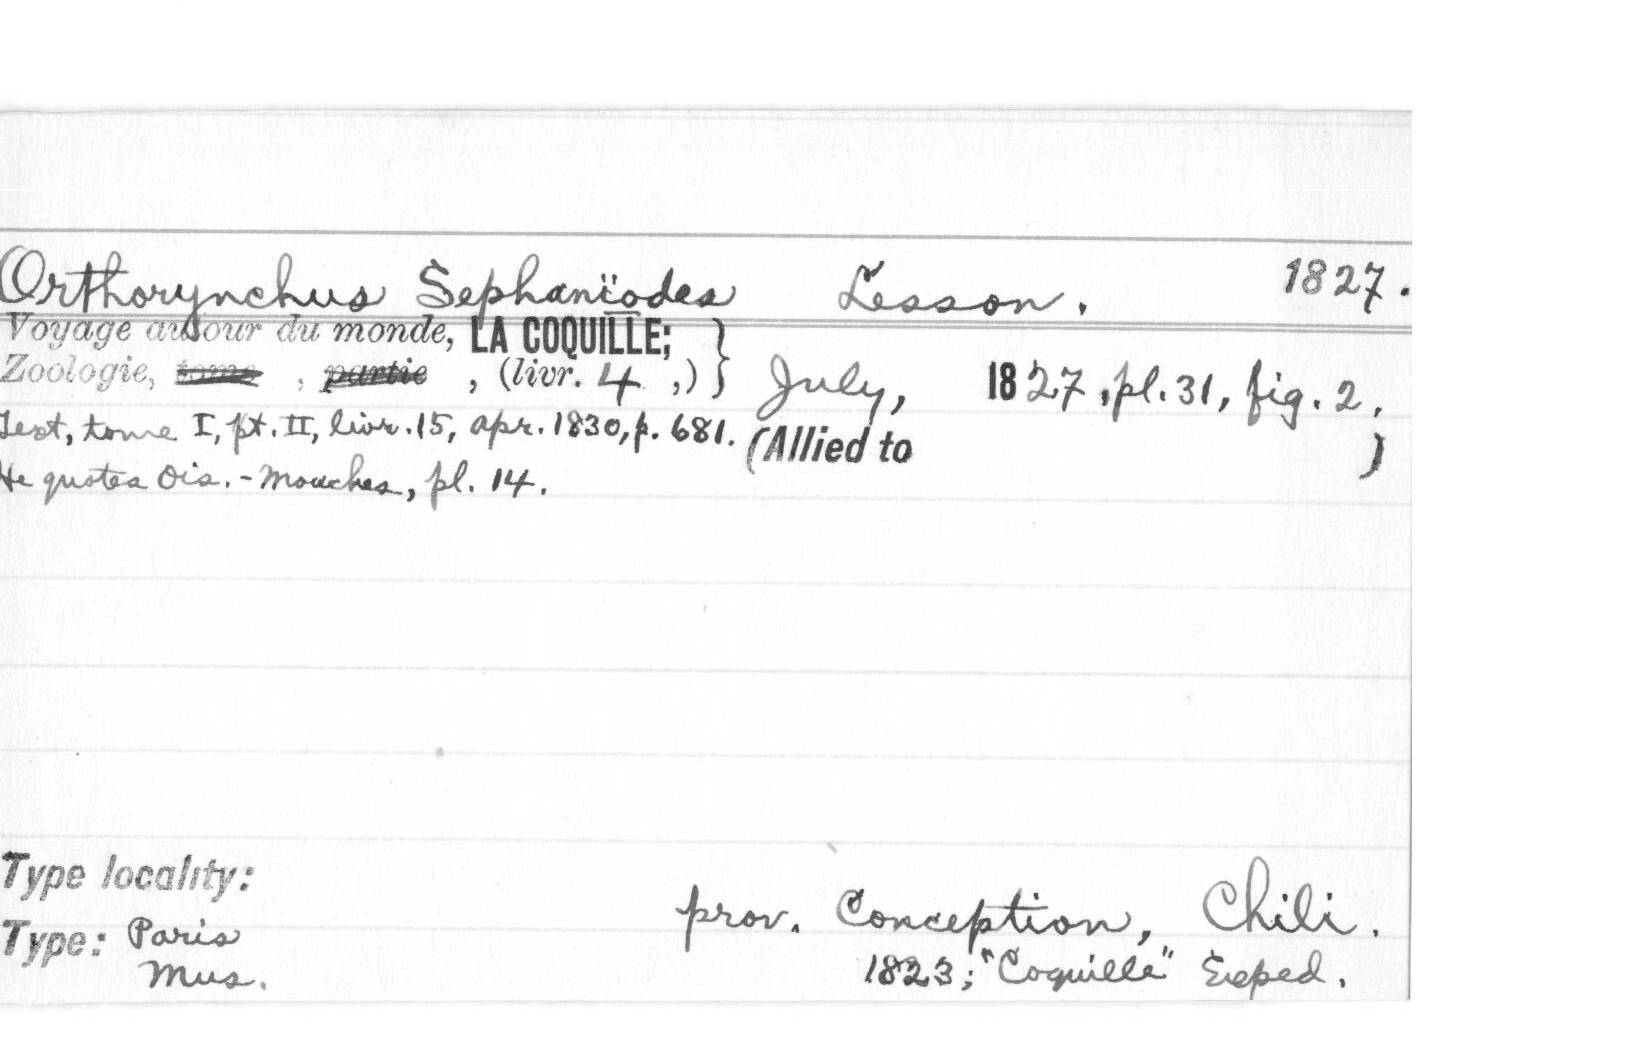 Orthorynchus Sephanïodes Lesson. 1827.
Voyage autour du monde, LA COQUILLE; }
Zoologie, tome , partie , (livr. 4 ,) } July, 1827, pl. 31, fig. 2.
Text, tome I, pt. II, livr. 15, apr. 1830, p. 681. (Allied to )
He quotes Ois. - Mouches, pl. 14.
Type locality:
prov. Conception, Chili.
Type: Paris
Mus. 1823; "Coquille" Exped.